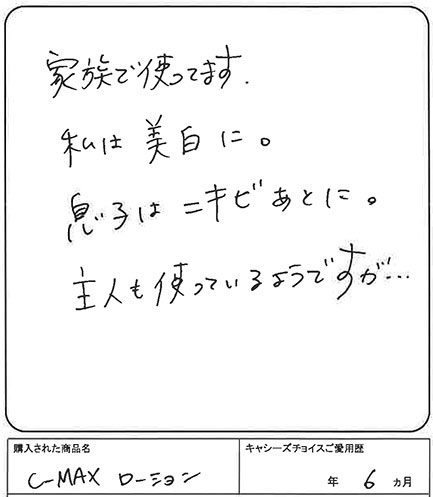 家族で使ってます.
私は美白に。
息子はニキビあとに。
主人も使っているようですが…
購入された商品名
キャシーズチョイスご愛用歴
C-MAX ローション
年 6 ヵ月